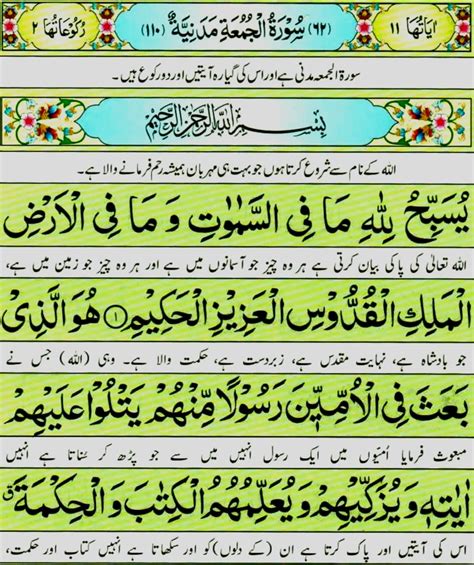 اٰيَاتُهَا ١١ (٦٢) سُوْرَةُ الْجُمُعَةِ مَدَنِيَّةٌ (١١٠) رُكُوْعَاتُهَا ٢
سورۃ الجمعہ مدنی ہے اور اس کی گیارہ آیتیں اور دو رکوع ہیں۔
بِسْمِ اللّٰهِ الرَّحْمٰنِ الرَّحِيْمِ
اللہ کے نام سے شروع کرتا ہوں جو بہت ہی مہربان ہمیشہ رحم فرمانے والا ہے۔
يُسَبِّحُ لِلّٰهِ مَا فِى السَّمٰوٰتِ وَ مَا فِى الْاَرْضِ
اللہ تعالیٰ کی پاکی بیان کرتی ہے ہر وہ چیز جو آسمانوں میں ہے اور ہر وہ چیز جو زمین میں ہے،
الْمَلِكِ الْقُدُّوْسِ الْعَزِيْزِ الْحَكِيْمِ ١ هُوَ الَّذِىْ
جو بادشاہ ہے، نہایت مقدس ہے، زبردست ہے، حکمت والا ہے۔ وہی (اللہ) جس نے
بَعَثَ فِى الْاُمِّيّٖنَ رَسُوْلًا مِّنْهُمْ يَتْلُوْا عَلَيْهِمْ
مبعوث فرمایا اُمّیوں میں ایک رسول انہیں میں سے جو پڑھ کر سُناتا ہے انہیں
اٰيٰتِهٖ وَ يُزَكِّيْهِمْ وَ يُعَلِّمُهُمُ الْكِتٰبَ وَ الْحِكْمَةَ ق
اس کی آیتیں اور پاک کرتا ہے ان (کے دلوں) کو اور سکھاتا ہے انہیں کتاب اور حکمت،